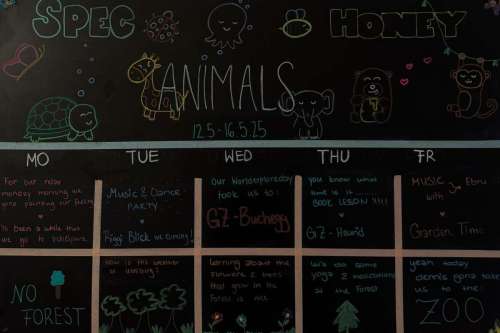 SPEC HONEY
ANIMALS
12.5 - 16.5.25
MO TUE WED THU FR
For our now
monday morning we
gone painting our
Is been a while that
we go to
MUSIC & Dance -
PARTY
Riggi Blick we coming!
Our
took us to:
GZ - Buchegg
you know what
time is is
BOOK LESSON !!!!
GZ - Heurid
MUSIC
with Ebru
Garden Time
NO
FOREST
how is the weather
lerning about the
flowers & trees
that grow in the
Forest is nice
We do some
yoga & meditations
at the Forest
yeah today
dennis gona take
us to the:
ZOO